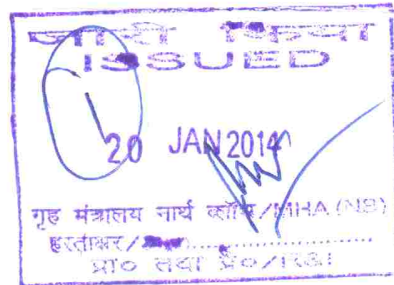 जारी किया
ISSUED
20 JAN 2014
गृह मंत्रालय नार्थ ब्लॉक/MHA (NB)
हस्ताक्षर/
प्रा० तथा प्रे०/R&I